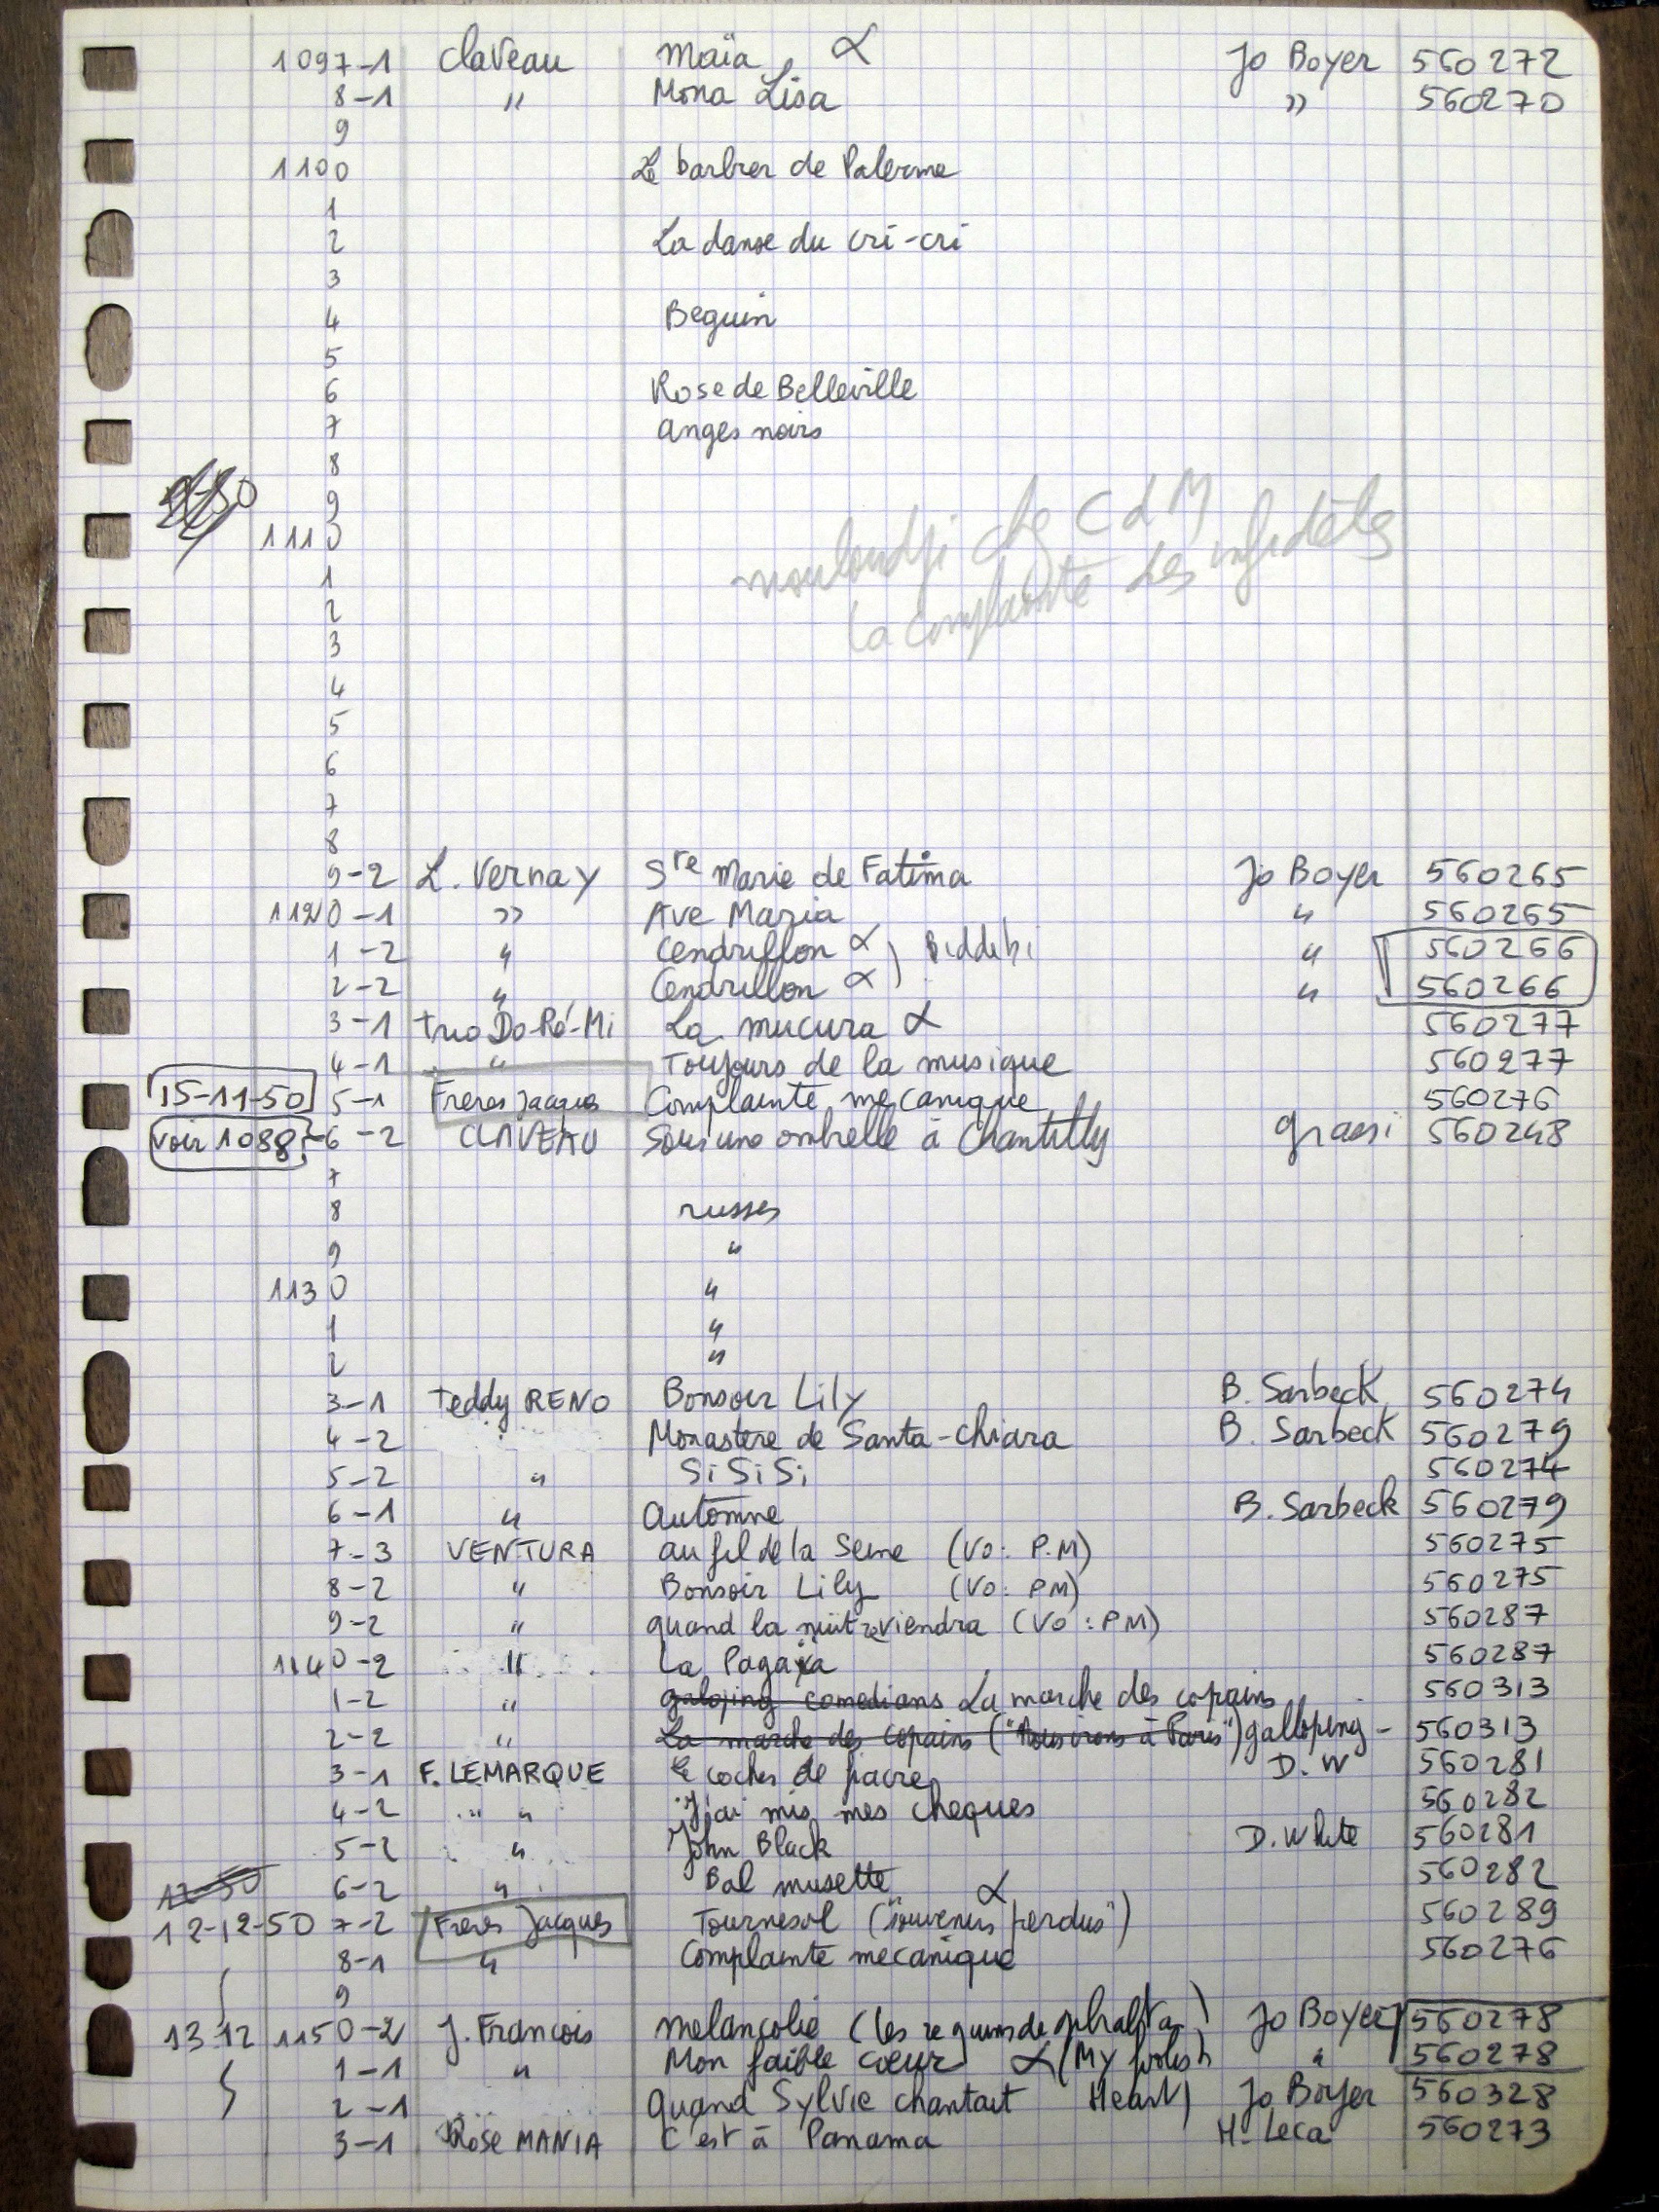 1097-1 Claveau Maïa α Jo Boyer 560272
8-1 " Mona Lisa " 560270
9
1100 Le barbier de Palerme
1
2 La danse du cri-cri
3
4 Beguin
5
6 Rose de Belleville
7 anges noirs
8
9
1110
mouloudji chg C d M
la complainte des infidèles
1
2
3
4
5
6
7
8
9-2 L. Vernay Ste Marie de Fatima Jo Boyer 560265
1120-1 " Ave Maria " 560265
1-2 " Cendrillon α) Biddebi " 560266
2-2 " Cendrillon α) " 560266
3-1 trio Do-Ré-Mi La mucura α 560277
4-1 " Toujours de la musique 560277
15-11-50 5-1 Freres Jacques Complainte mecanique 560276
voir 1088? 6-2 CLAVEAU Sous une ombrelle à Chantilly grassi 560248
7
8 russes
9 "
1130 "
1 "
2 "
3-1 Teddy RENO Bonsoir Lily B. Sarbeck 560274
4-2 Monastere de Santa-Chiara B. Sarbeck 560279
5-2 " Si Si Si 560274
6-1 " Automne B. Sarbeck 560279
7-3 VENTURA au fil de la Seine (VO: P.M) 560275
8-2 " Bonsoir Lily (VO: PM) 560275
9-2 " quand la nuit reviendra (VO: PM) 560287
1140-2 " La Pagaïa 560287
1-2 " galoping comedians La marche des copains 560313
2-2 " La marche des copains ("Nous irons à Paris") galloping - 560313
3-1 F. LEMARQUE le cocher de fiacre D. W 560281
4-2 " " J'ai mis mes cheques 560282
5-2 " John Black D. White 560281
12-50 6-2 " Bal musette 560282
12-12-50 7-2 Freres Jacques Tournesol ("souvenirs perdus") α 560289
8-1 " Complainte mecanique 560276
9
13-12 1150-2 J. Francois melancolie (les requins de gibraltar) Jo Boyer 560278
1-1 " Mon faible coeur α (My foolish " 560278
2-1 Quand Sylvie chantait Heart) Jo Boyer 560328
3-1 Rose MANIA C'est à Panama H. Leca 560273